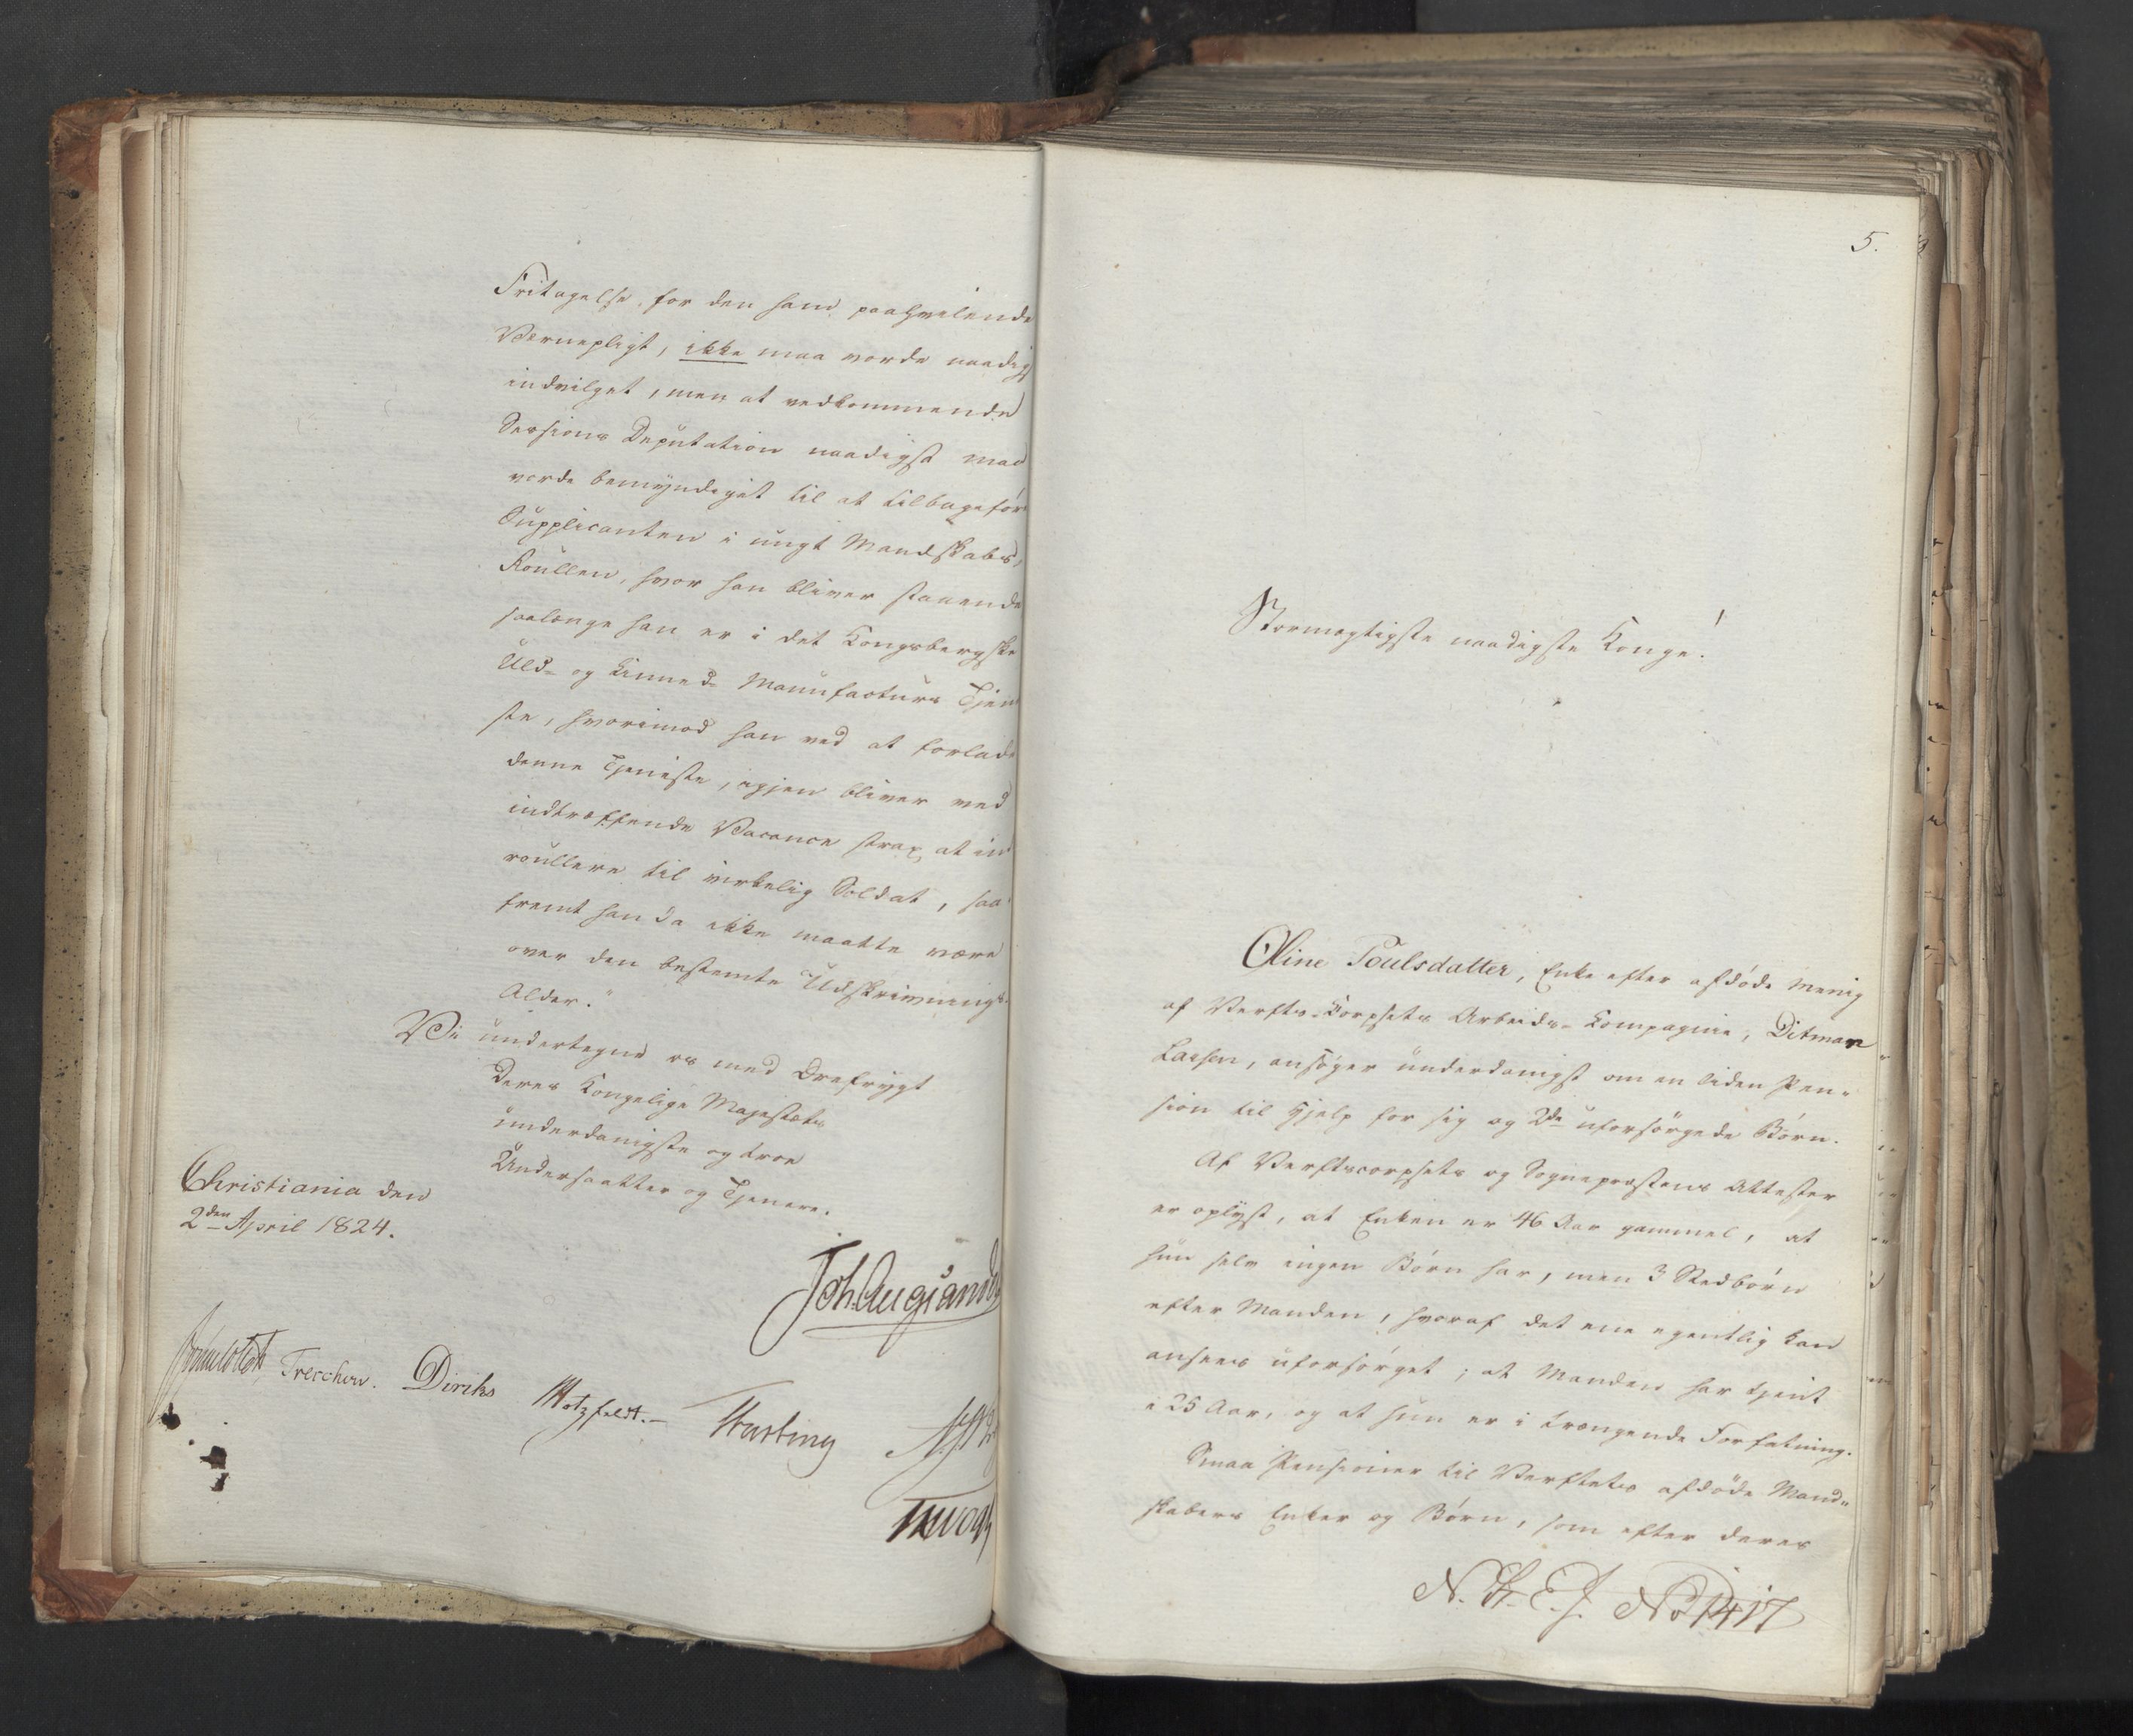 Fritagelse for den ham paahvilende
Værnepligt, ikke maa vorde naadigst
indvilget, men at vedkommende
Sessions Deputation naadigst maa
vorde bemyndiget til at tilbageføre
Supplicanten i ungt Mandskabs-
Roullen, hvor han bliver staaende
saalænge han er i det Kongsbergske
Uld- og Linned- Manufacturs Tjene
ste, hvorimod han ved at forlade
denne Tjeneste, igjen bliver ved
indtræffende Vacance strax at in
roullere til virkelig Soldat, saa
fremt han da ikke maatte være
over den bestemte Udskrivnings
Alder."
Vi undertegne os med Ærefrygt
Deres Kongelige Majestæts
underdanigste og troe
Undersaatter og Tjenere.
Christiania den
2den April 1824.
Joh. Aug. Sandels
Treschow. Diriks Motzfeldt.- Fasting
5.
Stormægtigste naadigste Konge!
Oline Poulsdatter, Enke efter afdøde Menig
af Verfts-Korpsets Arbeids-Kompagnie, Ditman
Larsen, ansøger underdanigst om en liden Pen-
sion til Hjelp for sig og 2de uforsørgede Børn.
Af Verftscorpsets og Sognepræstens Attester
er oplyst, at Enken er 46 Aar gammel, at
hun selv ingen Børn har, men 3 Stedbørn
efter Manden, hvoraf det ene egentlig kan
ansees uforsørget; at Manden har tjent
i 25 Aar, og at hun er i trængende Forfatning.
Smaa Pensioner til Verftets afdøde Mand-
skabers Enker og Børn, som efter deres
No 1417